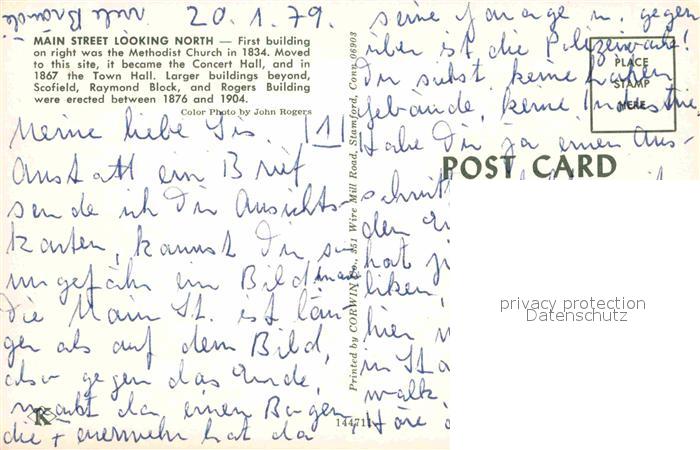 20.1.79.
MAIN STREET LOOKING NORTH — First building
on right was the Methodist Church in 1834. Moved
to this site, it became the Concert Hall, and in
1867 the Town Hall. Larger buildings beyond,
Scofield, Raymond Block, and Rogers Building
were erected between 1876 and 1904.
Color Photo by John Rogers
Meine liebe Lis. [1]
Anstatt ein Brief
sende ich Dir Ansichts-
karten, kannst Dir so
ungefähr ein Bild machen
die Main St. ist län-
ger als auf dem Bild,
also gegen das Ende,
macht da einen Bogen
die Feuerwehr hat da
K
144711
Printed by CORWIN Co., 351 Wire Mill Road, Stamford, Conn. 06903
seine Garage u. gegen
über ist die Polizeiwache!
Du siehst keine hohen
Gebäude, keine Industrie,
habe Dir ja einen Aus-
schnitt
den
hat
liken,
hier
in
walk
Höre
PLACE
STAMP
HERE
POST CARD
privacy protection
Datenschutz